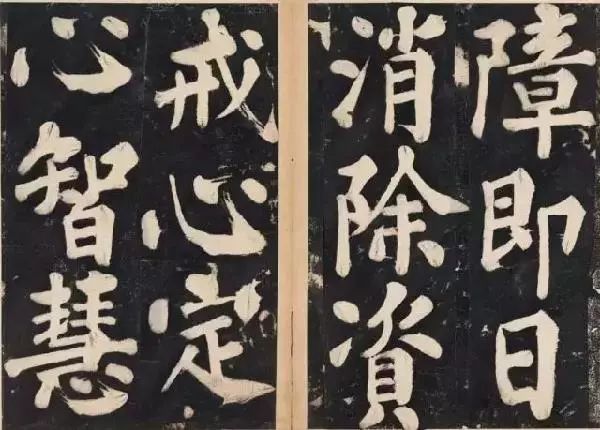 障即日
消除資
戒心定
心智慧